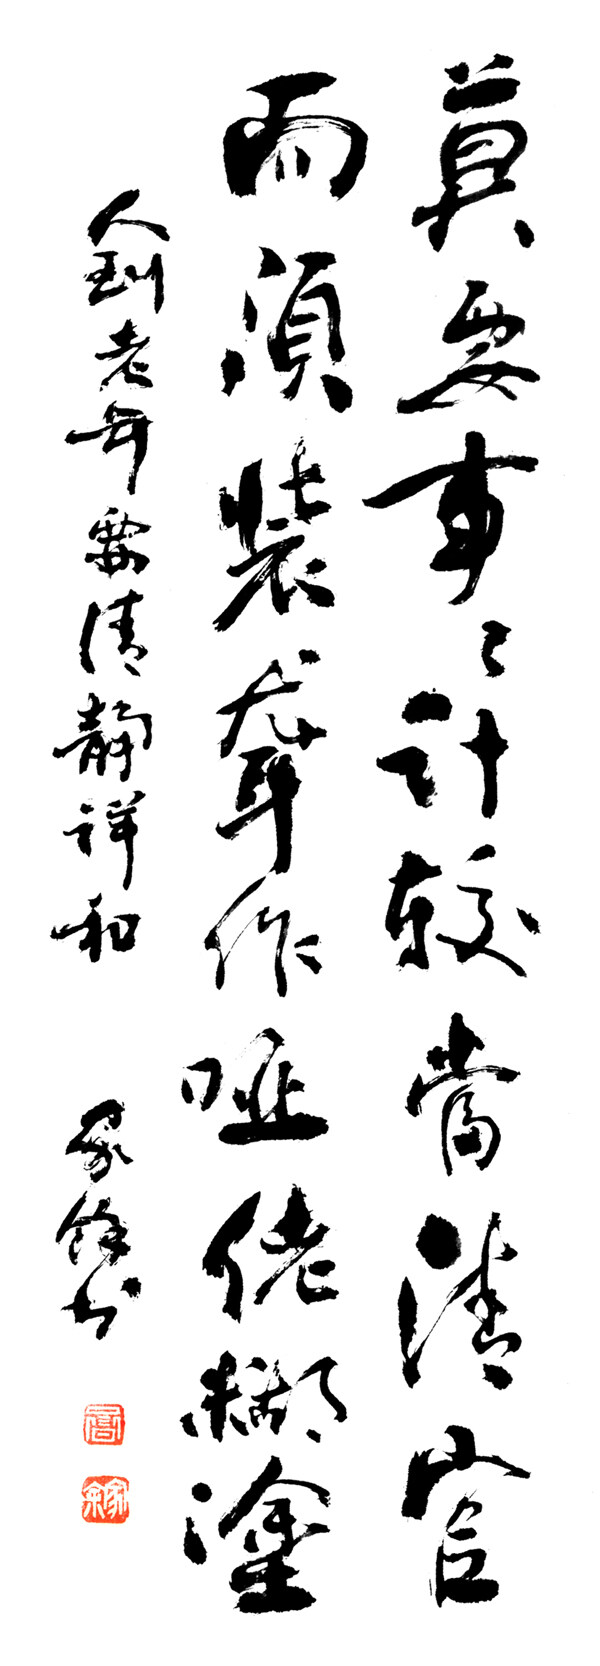 莫要事〻計較當清官
而須裝聋作啞佬糊塗
人到老年要清靜祥和
家馀书